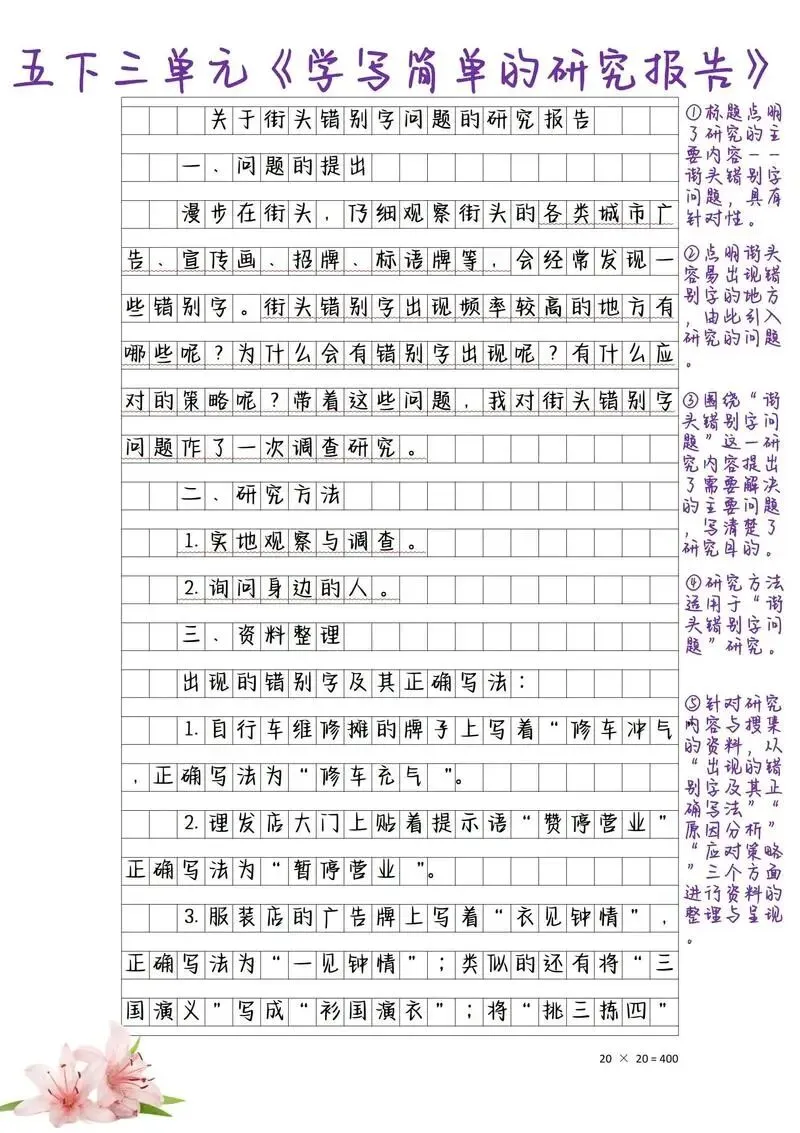 五下三单元《学写简单的研究报告》
关于街头错别字问题的研究报告
一、问题的提出
漫步在街头，仔细观察街头的各类城市广
告、宣传画、招牌、标语牌等，会经常发现一
些错别字。街头错别字出现频率较高的地方有
哪些呢？为什么会有错别字出现呢？有什么应
对的策略呢？带着这些问题，我对街头错别字
问题作了一次调查研究。
二、研究方法
1.实地观察与调查。
2.询问身边的人。
三、资料整理
出现的错别字及其正确写法：
1.自行车维修摊的牌子上写着“修车冲气
，正确写法为“修车充气”。
2.理发店大门上贴着提示语“赞停营业”
正确写法为“暂停营业”。
3.服装店的广告牌上写着“衣见钟情”，
正确写法为“一见钟情”；类似的还有将“三
国演义”写成“衫国演衣”；将“挑三拣四”
20 × 20=400
①标题点明
了研究的主
要内容——
街头错别字
问题，具有
针对性。
②点明街头
容易出现错
别字的地方
，由此引入
研究的问题
。
③围绕“街
头错别字问
题”这一研
究内容提出
了需要解决
的主要问题
，写清楚了
研究目的。
④研究方法
适用于“街
头错别字问
题”研究。
⑤针对研究
内容与搜集
的资料，从
“出现的错
别字及其正
确写法”“
原因分析”
“应对策略
”三个方面
进行资料的
整理与呈现
。